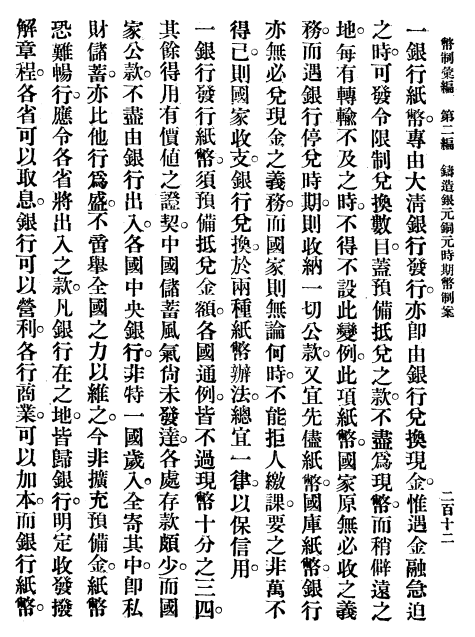 幣制彙編　第二編　鑄造銀元銅元時期幣制案　二百十二
一銀行紙幣。專由大清銀行發行。亦卽由銀行兌換現金。惟遇金融急迫
之時。可發令限制兌換數目。蓋預備抵兌之款。不盡爲現幣。而稍僻遠之
地。每有轉輸不及之時。不得不設此變例。此項紙幣。國家原無必收之義
務。而遇銀行停兌時期。則收納一切公款。又宜先儘紙幣。國庫紙幣。銀行
亦無必兌現金之義務。而國家則無論何時。不能拒人繳課。要之非萬不
得已。則國家收支。銀行兌換。於兩種紙幣辦法。總宜一律。以保信用。
一銀行發行紙幣。須預備抵兌金額。各國通例。皆不過現幣十分之三四。
其餘得用有價値之證契。中國儲蓄風氣尙未發達。各處存款頗少。而國
家公款。不盡由銀行出入。各國中央銀行。非特一國歲入。全寄其中。卽私
財儲蓄。亦比他行爲盛。不啻舉全國之力以維之。今非擴充預備金。紙幣
恐難暢行。應令各省將出入之款。凡銀行在之地。皆歸銀行。明定收發撥
解章程。各省可以取息。銀行可以營利。各行商業。可以加本。而銀行紙幣。